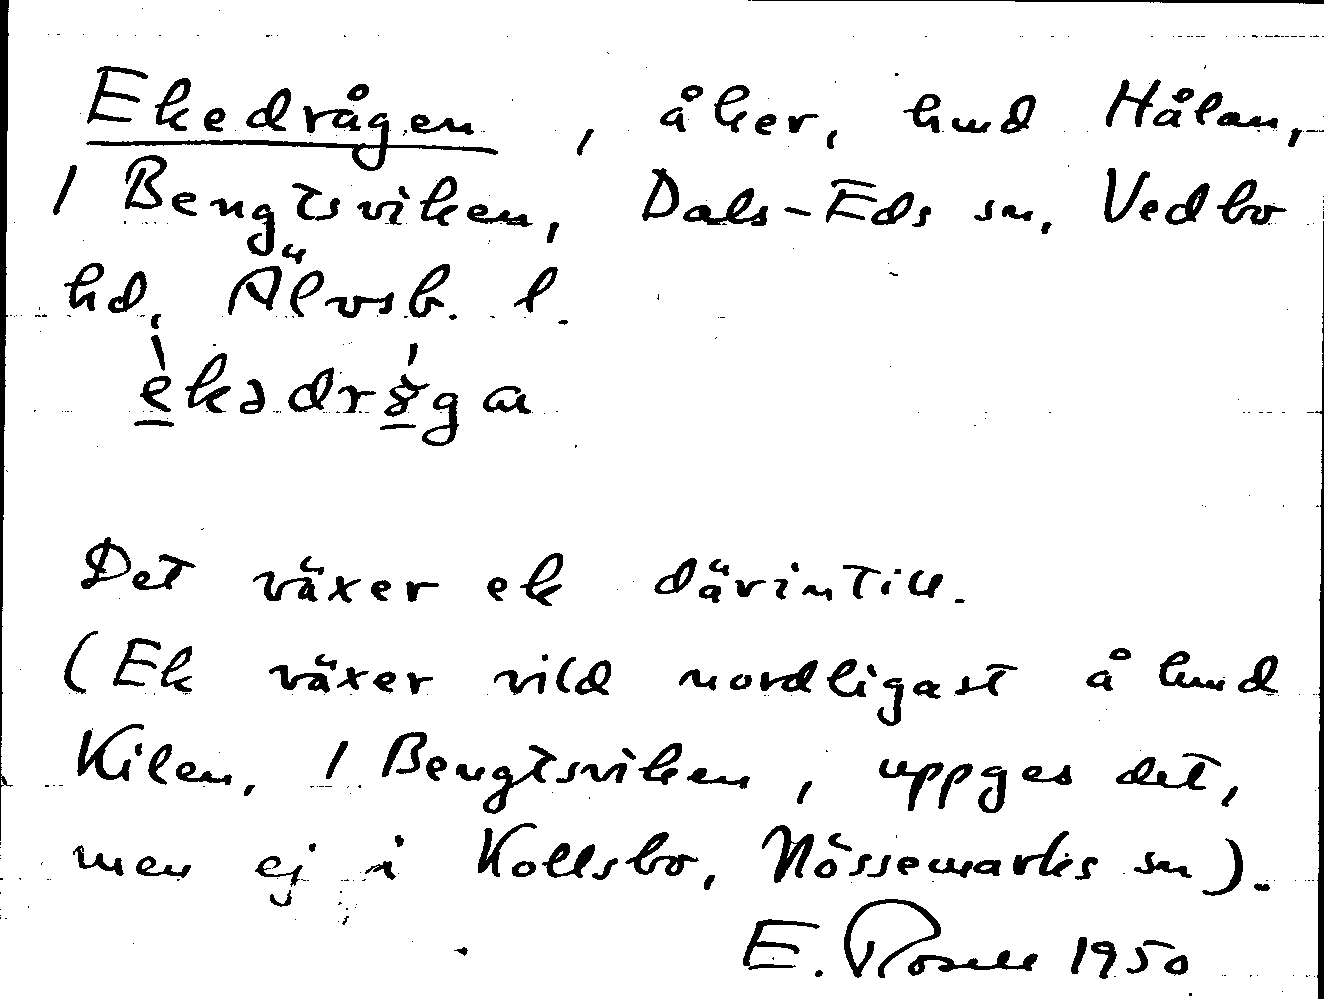 Ekedrågen, åker, hmd Hålan,
1 Bengtsviken, Dals-Eds sn, Vedbo
hd, Älvsb. l.
Det växer ek därintill.
(Ek växer vild nordligast å hmd
Kilen, 1 Bengtsviken, uppges det,
men ej i Kollsbo, Nössemarks sn).
E. Rosell 1950